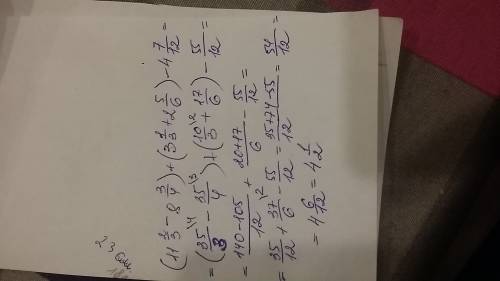 (11 2/3 - 8 3/4) + (3 1/3 + 2 5/6) - 4 7/12 =
= (35/3 \4 - 35/4 \3) + (10/3 \2 + 17/6) - 55/12 =
= 140-105/12 + 20+17/6 - 55/12 =
= 35/12 + 37/6 \2 - 55/12 = 35+74-55/12 = 54/12 =
= 4 6/12 = 4 1/2
23